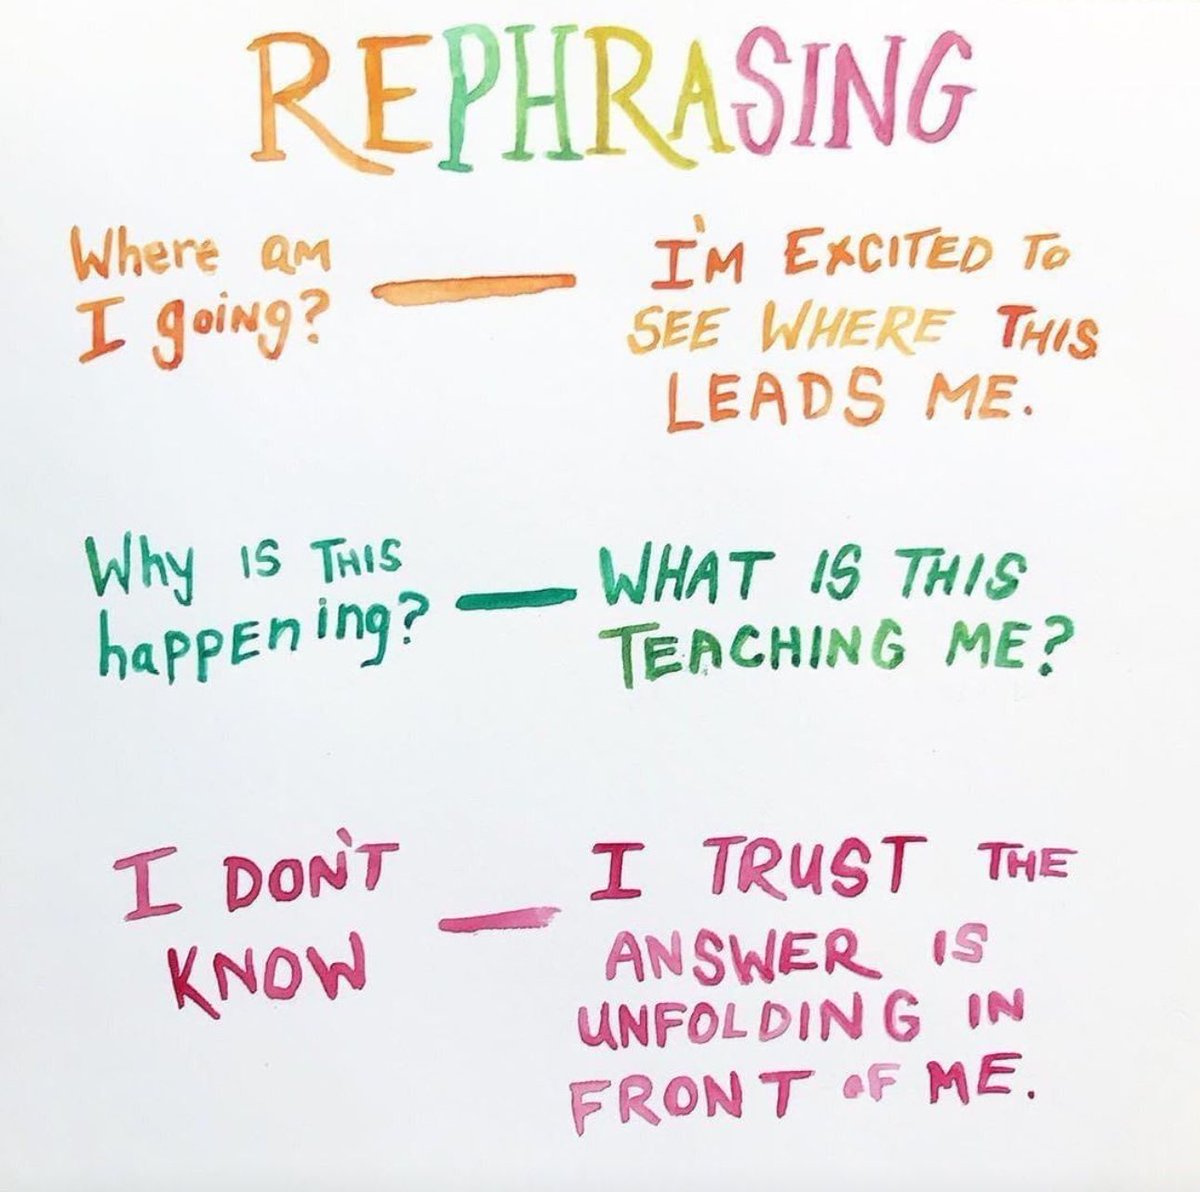 REPHRASING
Where am
I going?
I'M EXCITED TO
SEE WHERE THIS
LEADS ME.
Why is THIS
happening?
WHAT IS THIS
TEACHING ME?
I DON'T
KNOW
I TRUST THE
ANSWER IS
UNFOLDING IN
FRONT OF ME.